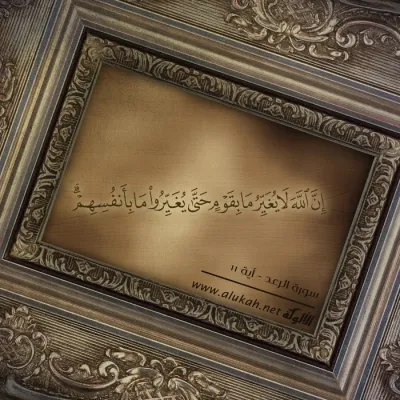 إِنَّ ٱللَّهَ لَا يُغَيِّرُ مَا بِقَوْمٍ حَتَّىٰ يُغَيِّرُوا۟ مَا بِأَنفُسِهِمْ ۗ
سورة الرعد - آية ١١
www.alukah.net
الألوكة